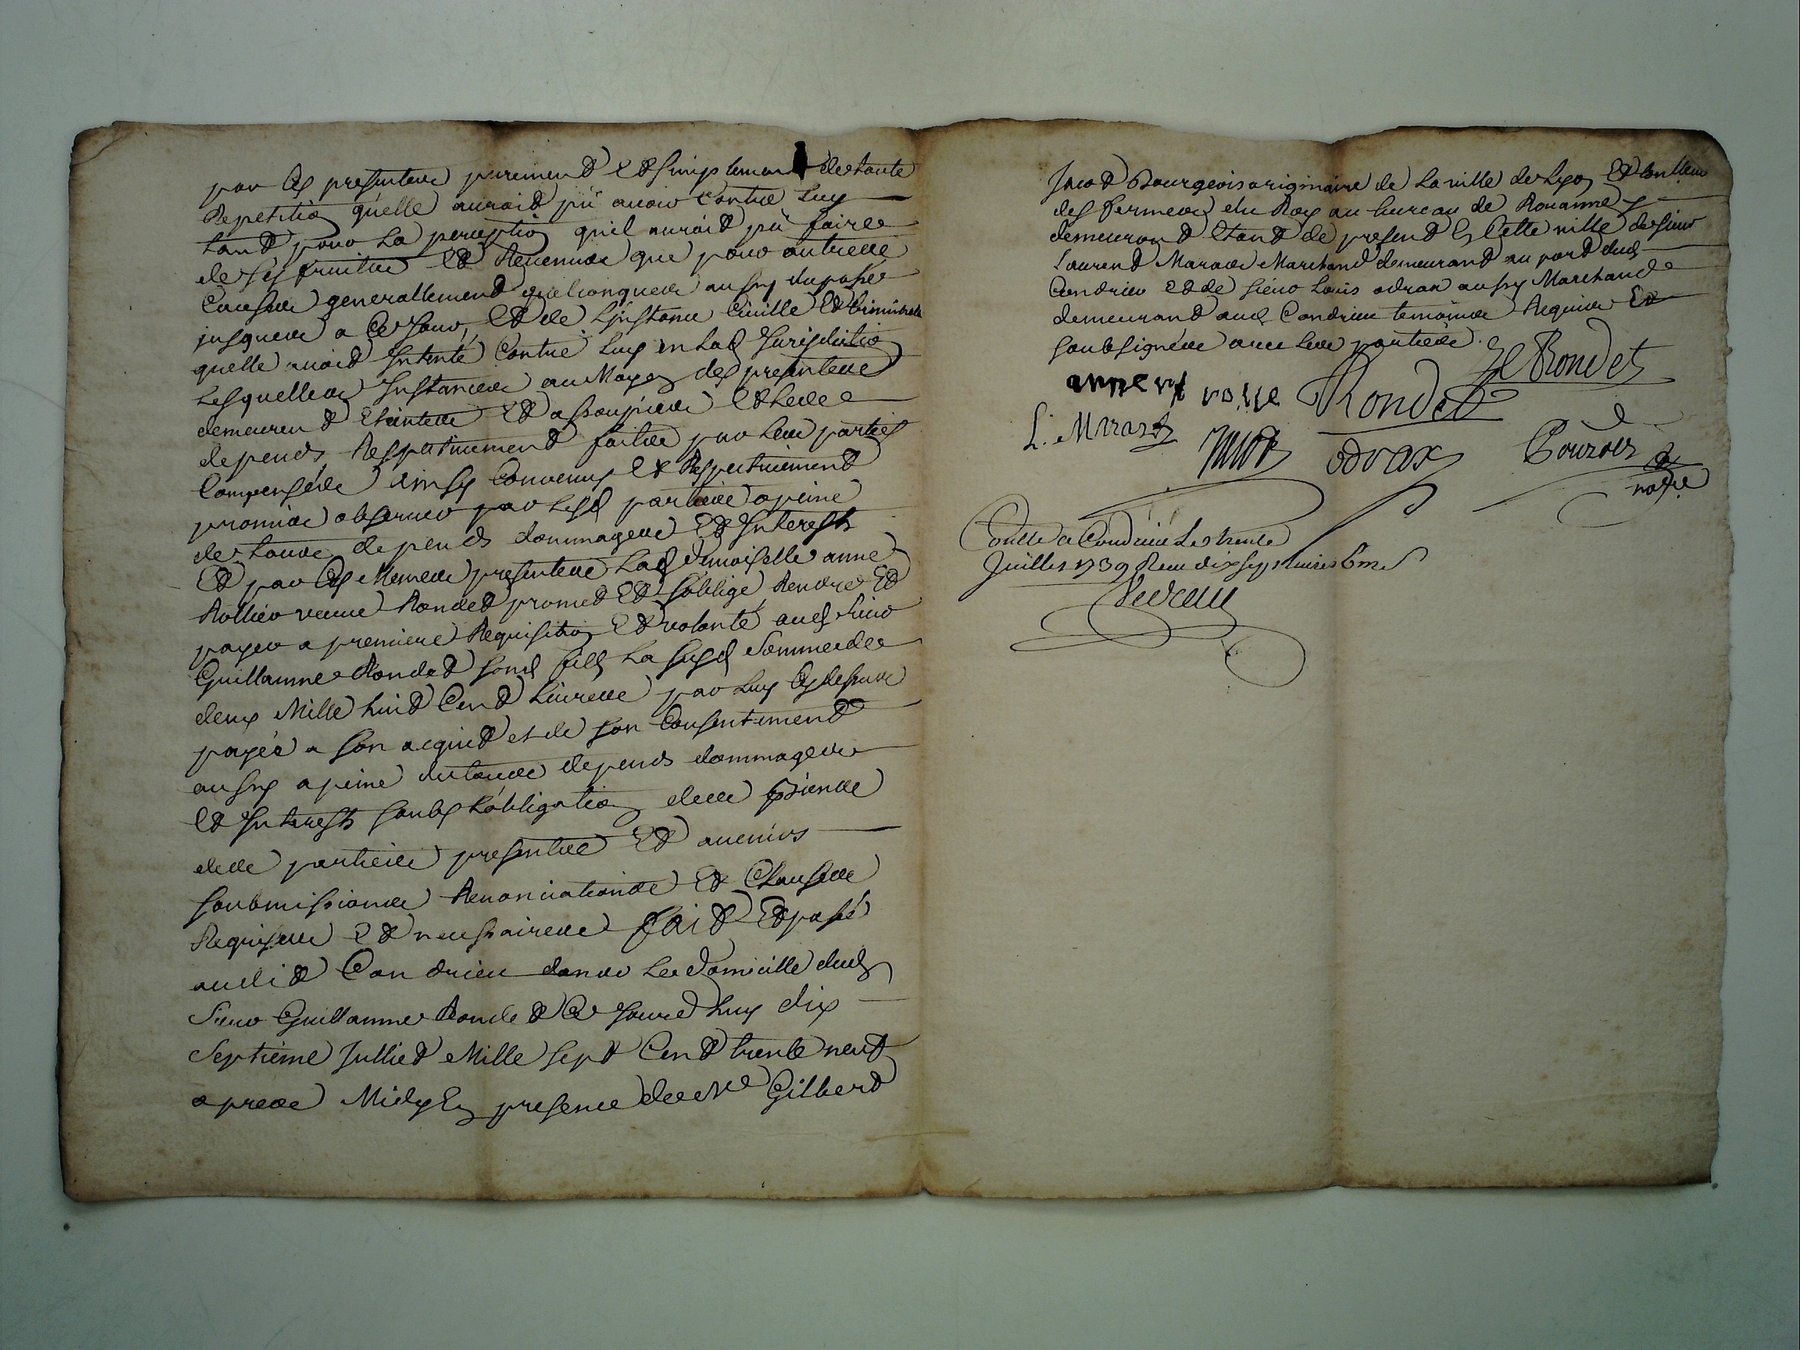 par Ces presentes purement Et simplement de toute
Repetition qu'elle auroit pû auoir Contre Luy
tant pour La perception qu'il auroit pû faire
de ses fruits Et Reuenus que pour autres
Causes generallement quelconques aussy du passé
jusques a Ce Jour, Et de L'jnstance Ciuille Et Criminelle
quelle auoit Jntenté Contre Luy en Lad Jurisdiction
Lesquelles Jnstances au Moyen des presentes
demeurent Eteintes Et assoupies Et Les
depends Respectiuement faits par Les parties
Compensés ainsy Conuenus Et Respectiuement
promis obseruer par Lesd parties a peine
de tous depends dommages Et Jnterests
Et par Ces Memes presentes Lad demoiselle anne
Rollier veuue Rondet promet Et s'oblige Rendre Et
payer a premiere Requisition Et volonté aud Sieur
Guillaume Rondet Sond fils La susd Somme de
deux Mille huit Cent Liures par Luy Cy dessus
payés a son acquit et de son Consentement
aussy a peine de tous depends dommages
Et Jnterests soubs L'obligation des biens
des parties presents Et auenirs
soubmissions Renonciations Et Clauses
Requises Et necessaires fait Et passé
audit Condrieu dans Le domicille dud
Sieur Guillaume Rondet Ce Jourd'huy dix
Septieme Julliet Mille Sept Cent trente neuf
apres Midy En presence de Mre Gilbert
Bourgeois originaire de La ville de Lyon Et
des fermes du Roy au bureau de Roanne y
demeurant Etant de present En Cette ville de sieur
Laurent Maras Marchand demeurant au port dud
Condrieu Et de sieur Loüis odrax aussy Marchand
demeurant aud Condrieu temoins Requis Et
soubsignés auec Les parties.
Rondet
G Rondet
L. Maras
odrax
nore
Controllé a Condrieu Le trente
Juillet 1739 Reçu dix sept liures